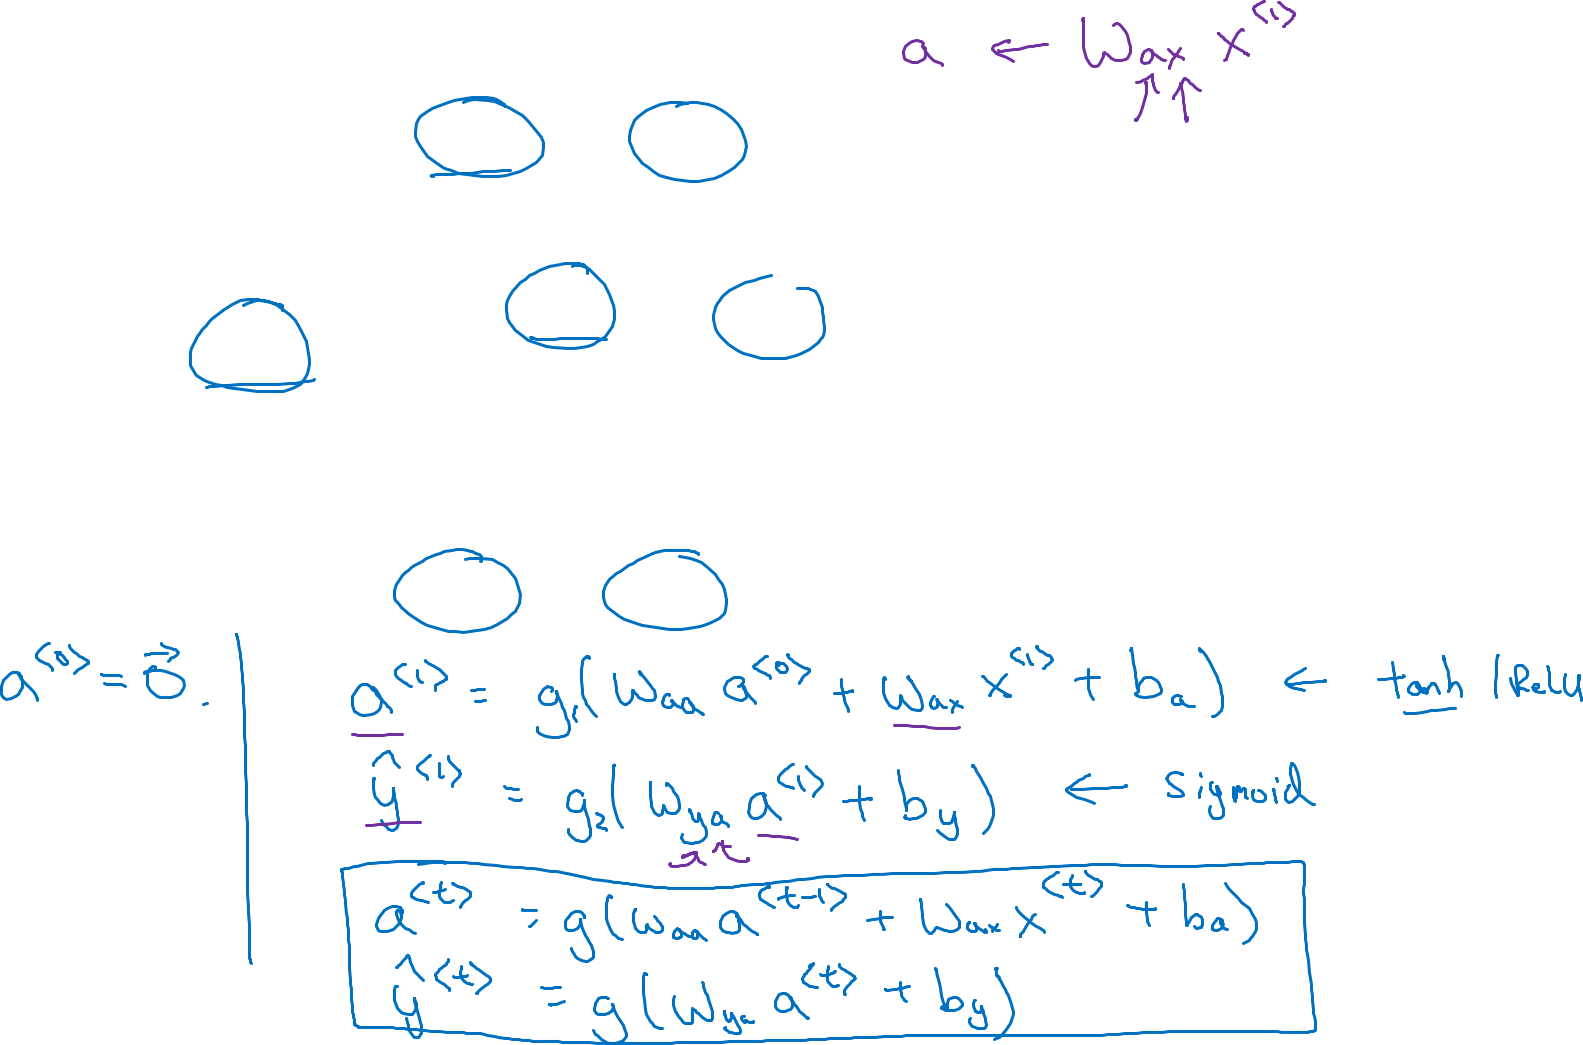 a ← Wax x<1>
a<0> = 0⃗.
a<1> = g₁(Waa a<0> + Wax x<1> + ba) ← tanh | ReLU
ŷ<1> = g₂(Wya a<1> + by) ← sigmoid
a<t> = g(Waa a<t-1> + Wax x<t> + ba)
ŷ<t> = g(Wya a<t> + by)